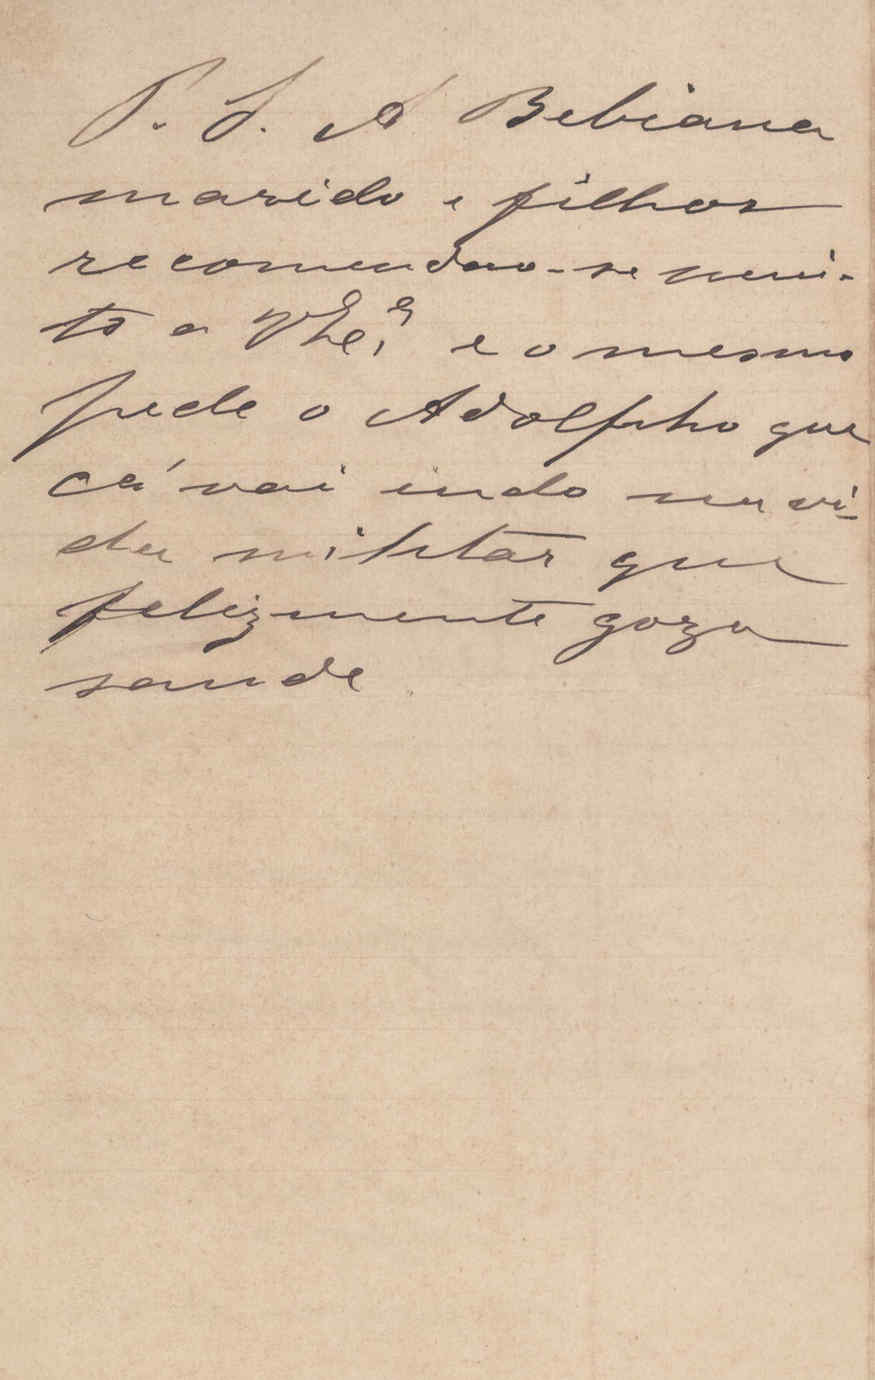 P. S. A Bebiana
marido e filhos
recomendão-se mui-
to a VExcia e o mesmo
pede o Adolpho que
cá vai indo na vi-
da militar que
felizmente goza
saude